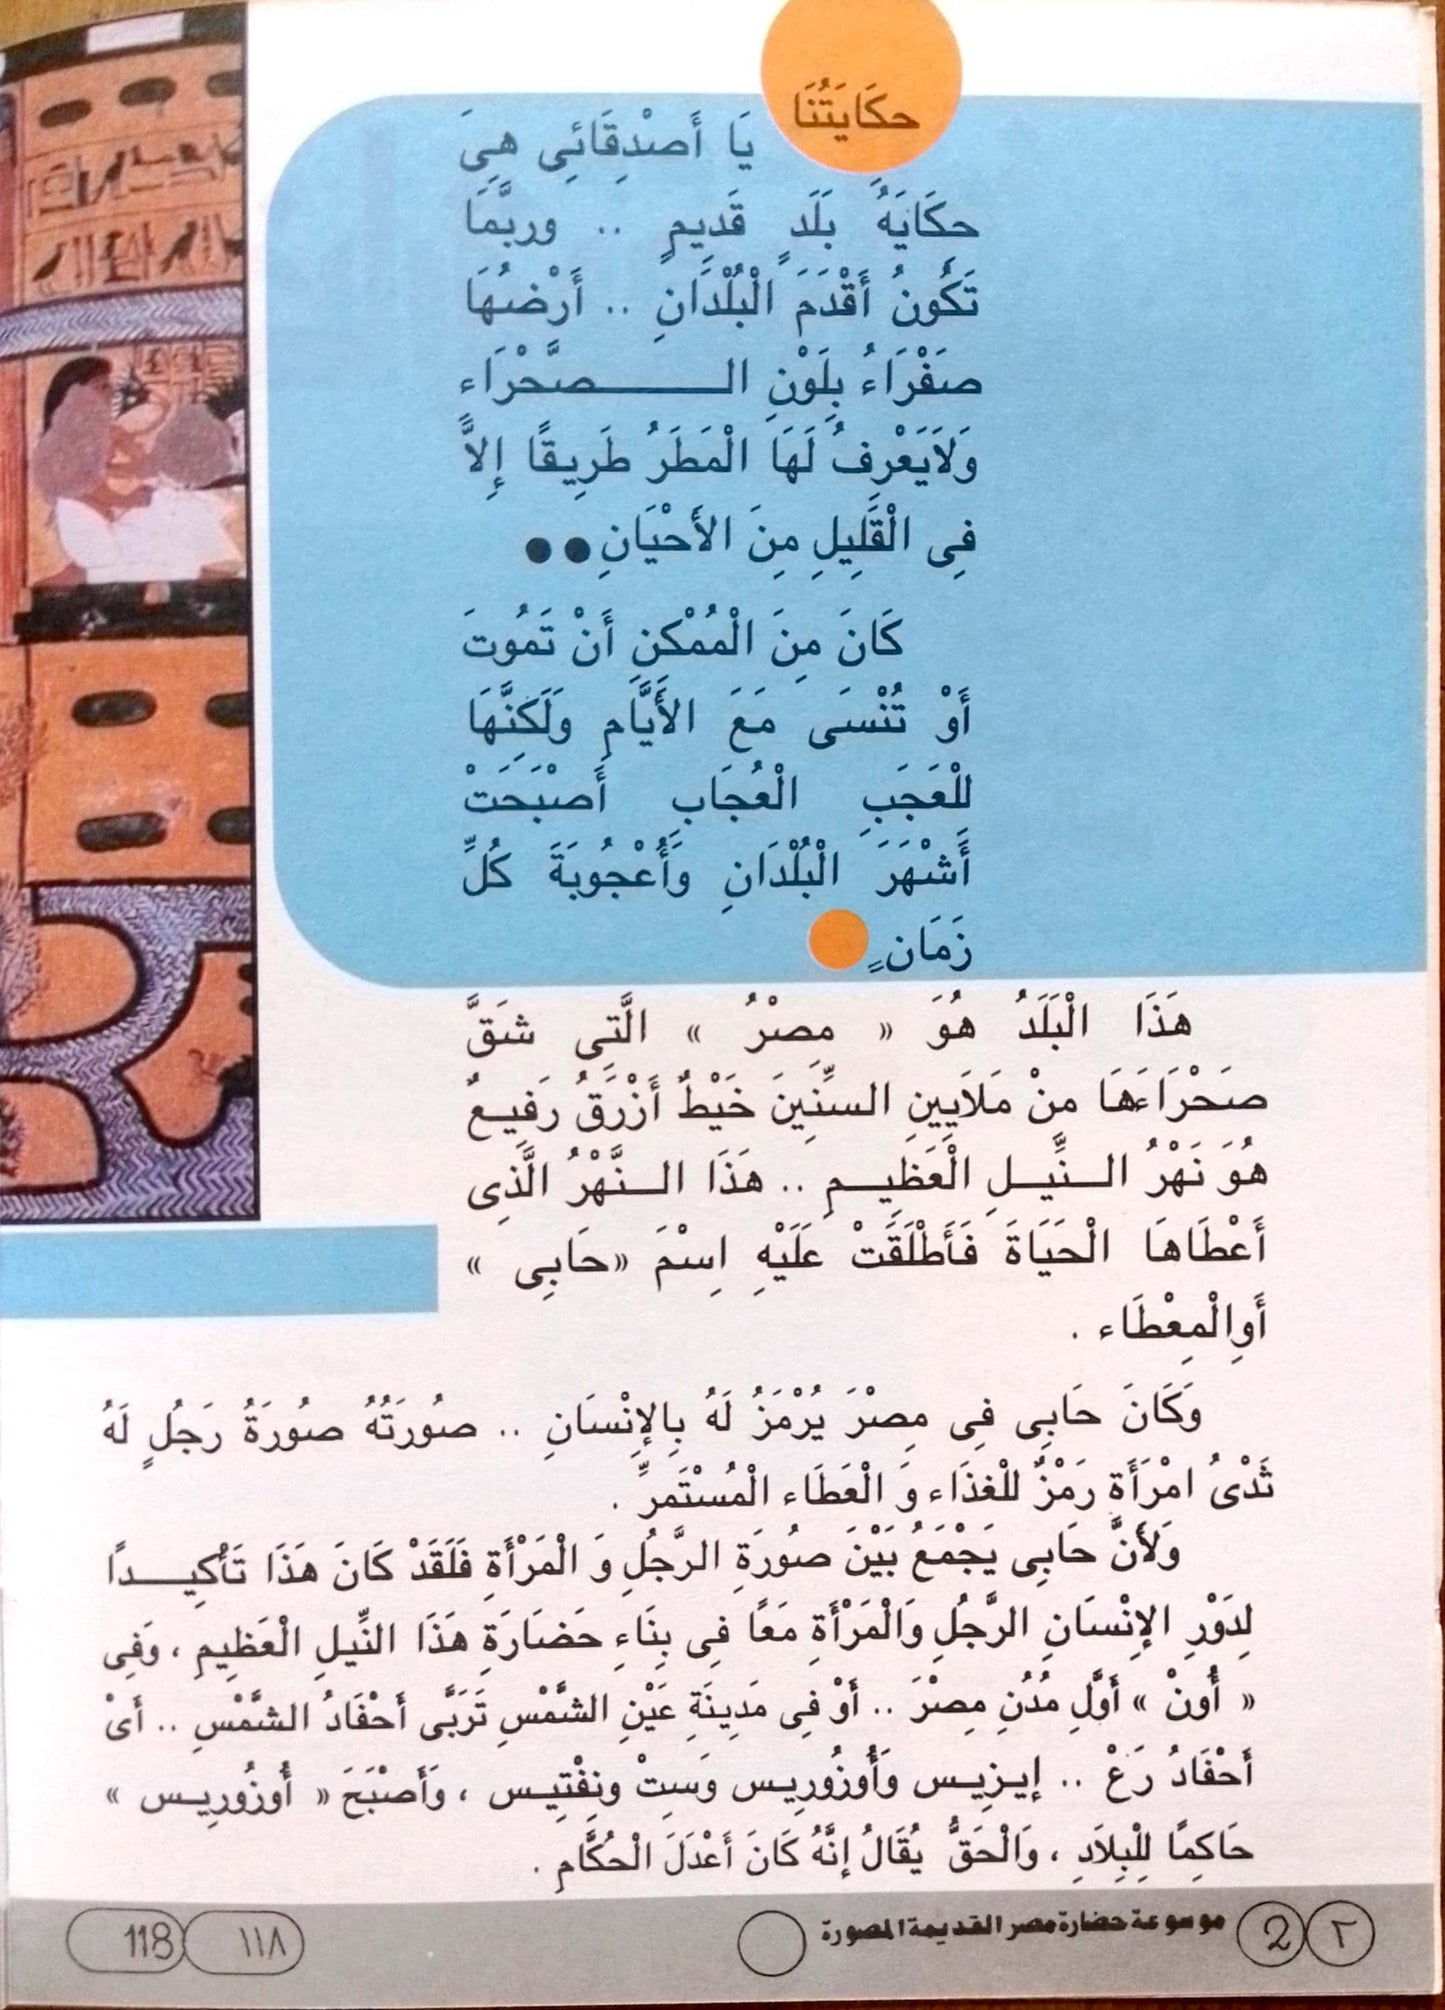 حكَايَتُنَا
يَا أَصْدِقَائِى هِىَ
حِكَايَةُ بَلَدٍ قَدِيمٍ .. وربَّمَا
تَكُونُ أَقْدَمَ الْبُلْدَانِ .. أَرْضُهَا
صَفْرَاءُ بِلَوْنِ الـــــصَّحْرَاء
وَلَايَعْرِفُ لَهَا الْمَطَرُ طَرِيقًا إِلاَّ
فِى الْقَلِيلِ مِنَ الأَحْيَانِ ●●
كَانَ مِنَ الْمُمْكِنِ أَنْ تَمُوتَ
أَوْ تُنْسَى مَعَ الأَيَّامِ وَلَكِنَّهَا
لِلْعَجَبِ الْعُجَاب أَصْبَحَتْ
أَشْهَرَ الْبُلْدَانِ وَأُعْجُوبَةَ كُلِّ
زَمَانٍ
هَذَا الْبَلَدُ هُوَ « مصْرُ » الَّتِى شَقَّ
صَحْرَاءَهَا منْ مَلَايِينِ السِّنِينَ خَيْطٌ أَزْرَقُ رَفِيعٌ
هُوَ نَهْرُ الـنِّيـلِ الْعَظِيـمِ .. هَذَا الـنَّهْرُ الَّذِى
أَعْطَاهَا الْحَيَاةَ فَأَطْلَقَتْ عَلَيْهِ اِسْمَ «حَابِى »
أَوِالْمِعْطَاء .
وَكَانَ حَابِى فِى مِصْرَ يُرْمَزُ لَهُ بِالإِنْسَانِ .. صُورَتُهُ صُورَةُ رَجُلٍ لَهُ
ثَدْىُ امْرَأَة رَمْزٌ للْغذَاء وَ الْعَطَاء الْمُسْتَمرِّ .
وَلأَنَّ حَابِى يَجْمَعُ بَيْنَ صُورَةِ الرَّجُلِ وَ الْمَرْأَةِ فَلَقَدْ كَانَ هَذَا تَأْكِيـــدًا
لِدَوْرِ الإِنْسَانِ الرَّجُلِ وَالْمَرْأَةِ مَعًا فِى بِنَاءِ حَضَارَةِ هَذَا النِّيلِ الْعَظِيمِ ، وَفِى
« أُونْ » أَوَّلِ مُدُنِ مِصْرَ .. أَوْ فِى مَدِينَةِ عَيْنِ الشَّمْسِ تَرَبَّى أَحْفَادُ الشَّمْسِ .. أَىْ
أَحْفَادُ رَعْ .. إيـزِيـس وَأُوزُورِيـس وَسِتْ ونِفْتِيـس ، وَأَصْبَحَ « أُوزُورِيـس »
حَاكِمًا لِلْبِلَادِ ، وَالْحَقُّ يُقَالُ إِنَّهُ كَانَ أَعْدَلَ الْحُكَّامِ .
٢ 2 موسوعة حضارة مصر القديمة المصورة ١١٨ 118